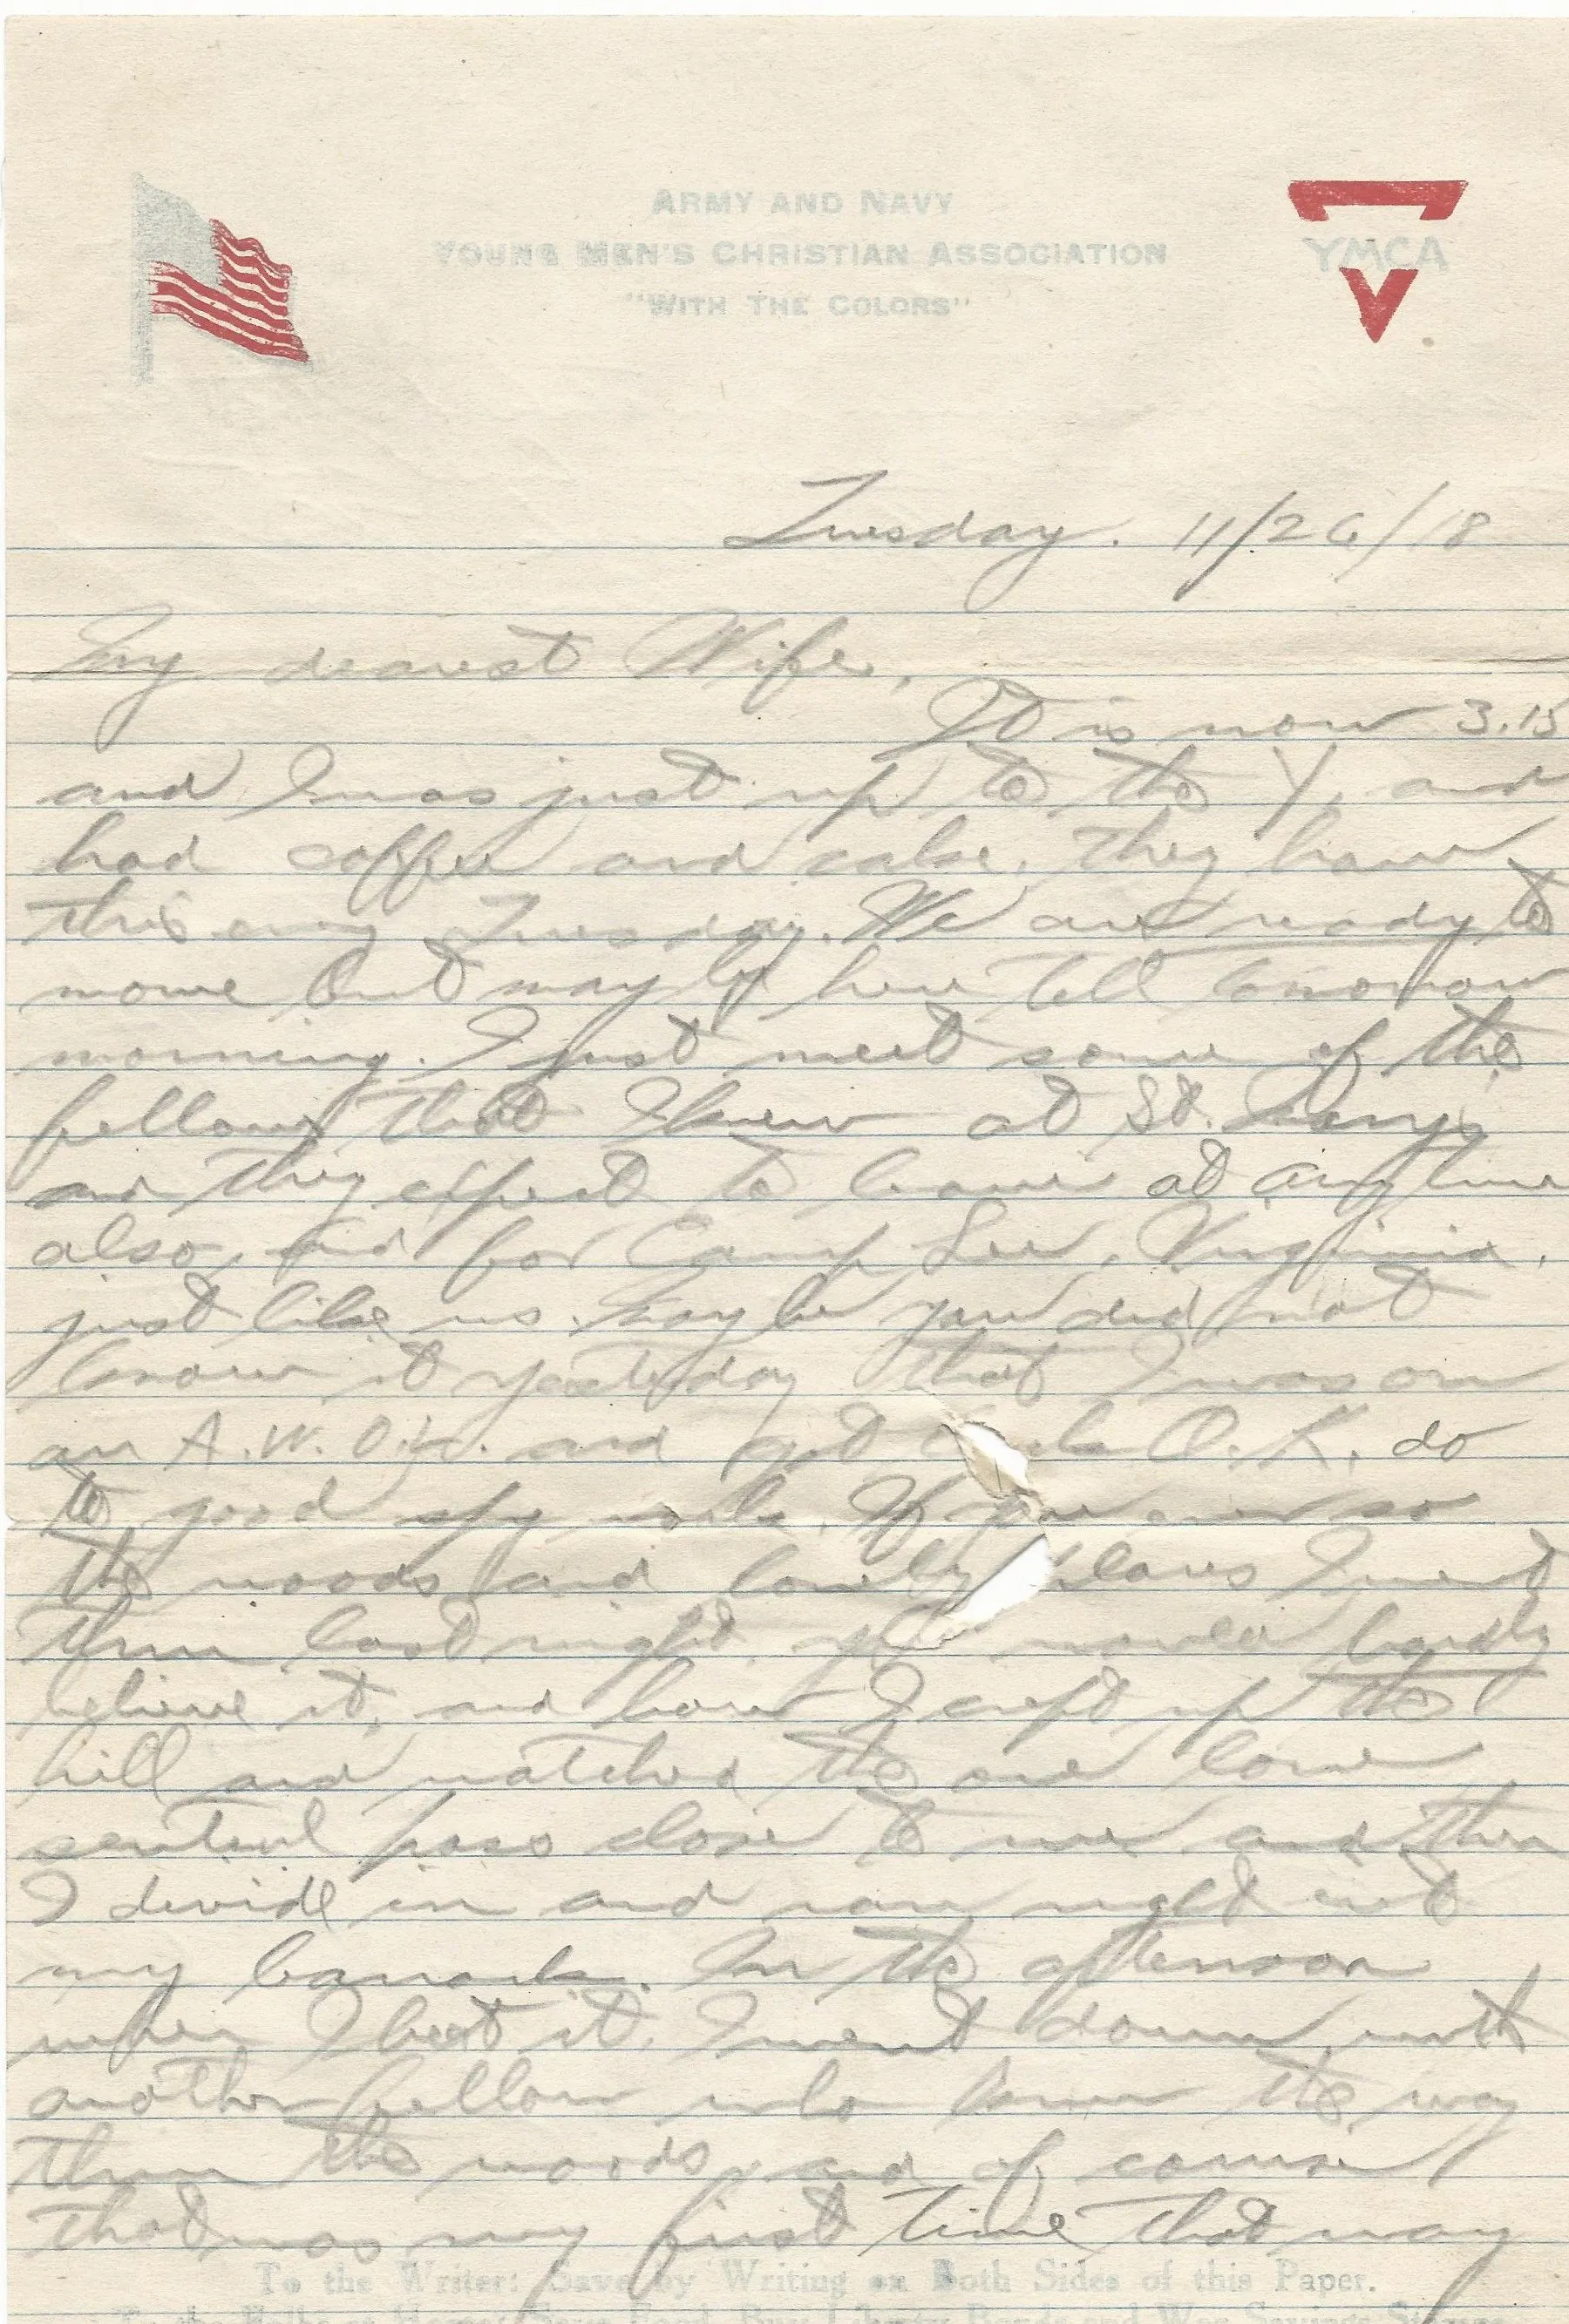 ARMY AND NAVY
YOUNG MEN'S CHRISTIAN ASSOCIATION
"WITH THE COLORS"
YMCA
Tuesday. 11/26/18
My dearest Wife,
It is now 3.15
and I was just up to the Y, and
had coffee and cake. They have
this every Tuesday. We are ready to
move but may be here till tomorrow
morning. I just meet some of the
fellows that I knew at St. Marys
and they expect to leave at any time
also, and for Camp Lee, Virginia,
just like us. May be you did not
know it yesterday that I was on
an A.W.O.L. and got O.K. do
to good spy work. If you ever so
the woods and lonely places I went
thru last night, would hardly
believe it, and how I crept up the
hill and watched the one lone
sentinel pass close to me and then
I divide in and ran right int
my barracks. In the afternoon
when I beat it, I went down with
another fellow who knew the way
thru the woods, and of course
that was my first time that way
To the Writer: Save by Writing on Both Sides of this Paper.